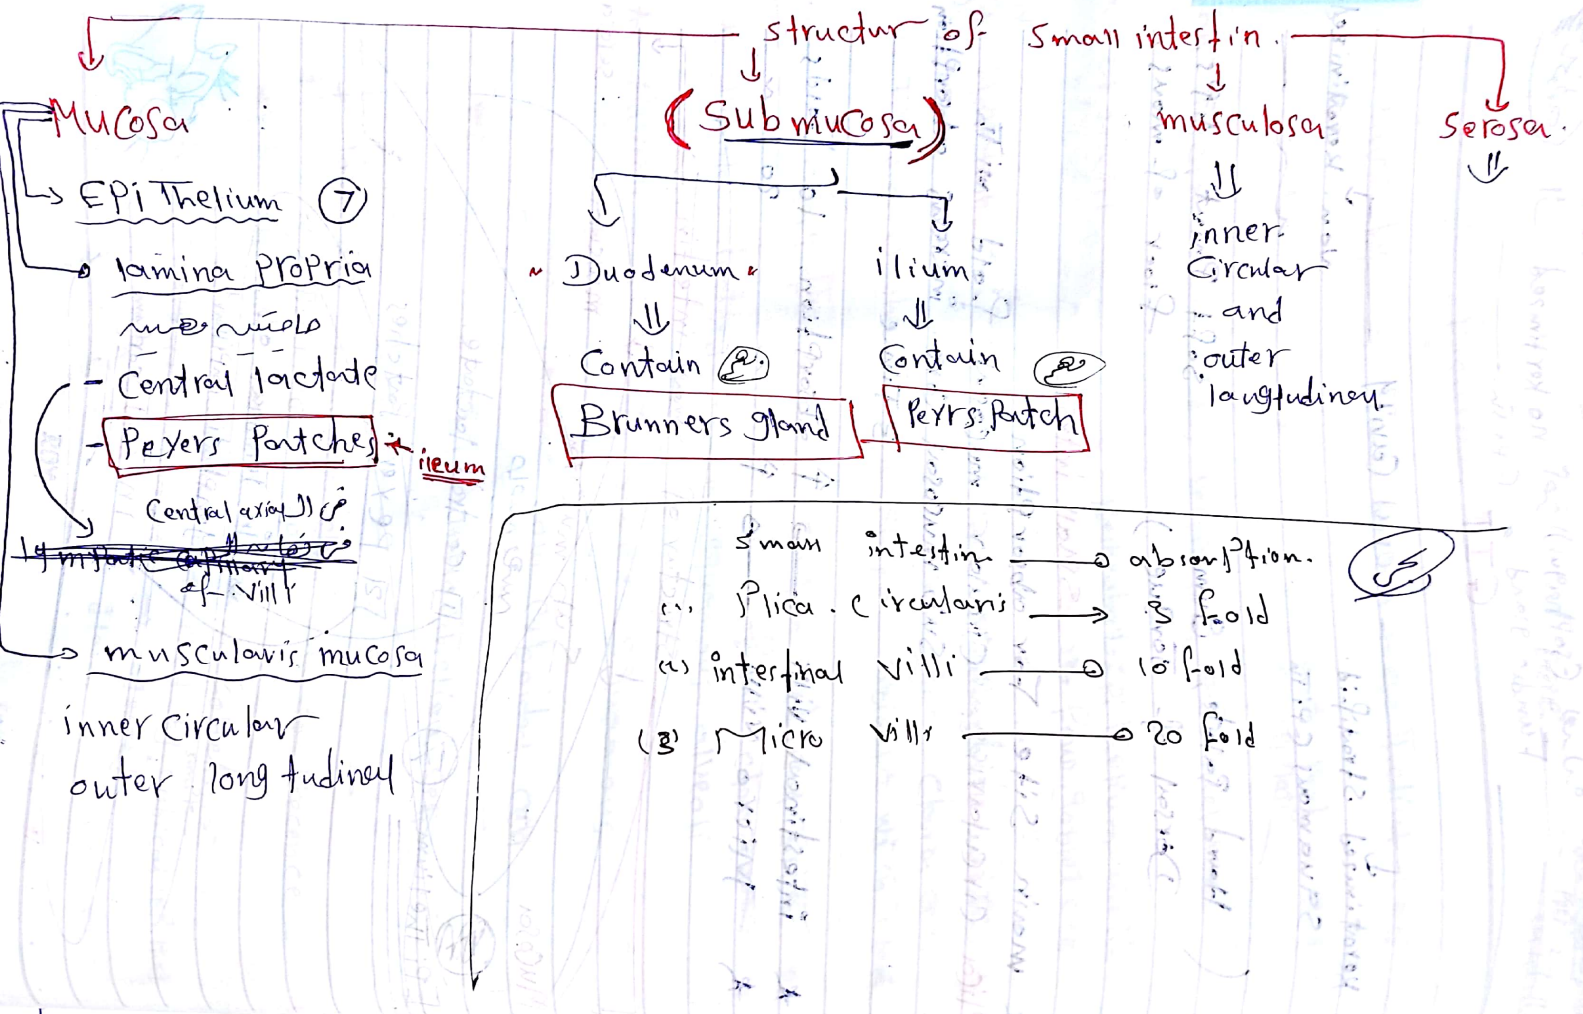 structur of small intestin.
Mucosa
(Sub mucosa)
musculosa
Serosa.
EPiThelium 7
lamina Propria
- Central lactate
- Peyers Patches
ileum
Central axial في ال
of villi
muscularis mucosa
inner circular
outer longtudinal
"Duodenum"
Contain
Brunners gland
ilium
Contain
Peyrs Patch
inner
Circular
and
outer
langtudinal
Small intestin absorption.
(1) Plica circularis 3 fold
(2) intestinal villi 10 fold
(3) Micro villi 20 fold